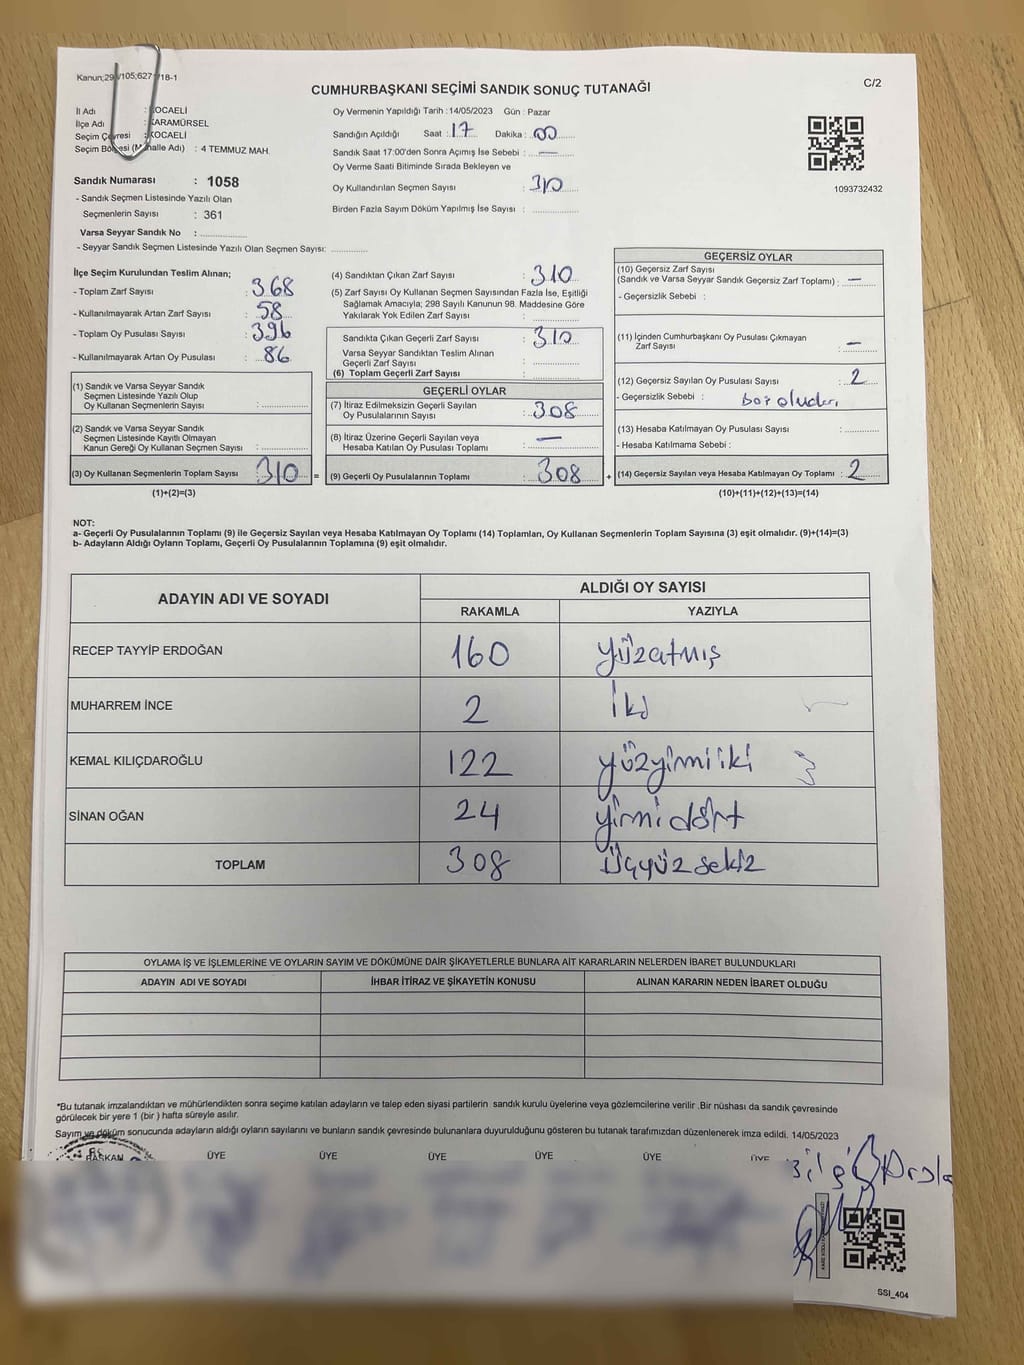 Kanun;29 /105;627 /18-1
CUMHURBAŞKANI SEÇİMİ SANDIK SONUÇ TUTANAĞI
C/2
İl Adı : KOCAELİ
İlçe Adı : KARAMÜRSEL
Seçim Çevresi : KOCAELİ
Seçim Bölgesi (Mahalle Adı) : 4 TEMMUZ MAH.
Sandık Numarası : 1058
- Sandık Seçmen Listesinde Yazılı Olan
Seçmenlerin Sayısı : 361
Varsa Seyyar Sandık No :
- Seyyar Sandık Seçmen Listesinde Yazılı Olan Seçmen Sayısı:
Oy Vermenin Yapıldığı Tarih : 14/05/2023 Gün : Pazar
Sandığın Açıldığı Saat : 17 Dakika : 00
Sandık Saat 17:00'den Sonra Açımış İse Sebebi : —
Oy Verme Saati Bitiminde Sırada Bekleyen ve
Oy Kullandırılan Seçmen Sayısı : 310
Birden Fazla Sayım Döküm Yapılmış İse Sayısı :
1093732432
İlçe Seçim Kurulundan Teslim Alınan;
- Toplam Zarf Sayısı : 368
- Kullanılmayarak Artan Zarf Sayısı : 58
- Toplam Oy Pusulası Sayısı : 396
- Kullanılmayarak Artan Oy Pusulası : 86
(1) Sandık ve Varsa Seyyar Sandık
Seçmen Listesinde Yazılı Olup
Oy Kullanan Seçmenlerin Sayısı :
(2) Sandık ve Varsa Seyyar Sandık
Seçmen Listesinde Kayıtlı Olmayan
Kanun Gereği Oy Kullanan Seçmen Sayısı :
(3) Oy Kullanan Seçmenlerin Toplam Sayısı : 310 =
(1)+(2)=(3)
(4) Sandıktan Çıkan Zarf Sayısı : 310
(5) Zarf Sayısı Oy Kullanan Seçmen Sayısından Fazla İse, Eşitliği
Sağlamak Amacıyla; 298 Sayılı Kanunun 98. Maddesine Göre
Yakılarak Yok Edilen Zarf Sayısı :
Sandıkta Çıkan Geçerli Zarf Sayısı : 310
Varsa Seyyar Sandıktan Teslim Alınan
Geçerli Zarf Sayısı :
(6) Toplam Geçerli Zarf Sayısı :
GEÇERLİ OYLAR
(7) İtiraz Edilmeksizin Geçerli Sayılan
Oy Pusulalarının Sayısı : 308
(8) İtiraz Üzerine Geçerli Sayılan veya
Hesaba Katılan Oy Pusulası Toplamı : —
(9) Geçerli Oy Pusulalarının Toplamı : 308 +
GEÇERSİZ OYLAR
(10) Geçersiz Zarf Sayısı
(Sandık ve Varsa Seyyar Sandık Geçersiz Zarf Toplamı) : —
- Geçersizlik Sebebi :
(11) İçinden Cumhurbaşkanı Oy Pusulası Çıkmayan
Zarf Sayısı : —
(12) Geçersiz Sayılan Oy Pusulası Sayısı : 2
- Geçersizlik Sebebi :
(13) Hesaba Katılmayan Oy Pusulası Sayısı :
- Hesaba Katılmama Sebebi :
(14) Geçersiz Sayılan veya Hesaba Katılmayan Oy Toplamı : 2
(10)+(11)+(12)+(13)=(14)
NOT:
a- Geçerli Oy Pusulalarının Toplamı (9) ile Geçersiz Sayılan veya Hesaba Katılmayan Oy Toplamı (14) Toplamları, Oy Kullanan Seçmenlerin Toplam Sayısına (3) eşit olmalıdır. (9)+(14)=(3)
b- Adayların Aldığı Oyların Toplamı, Geçerli Oy Pusulalarının Toplamına (9) eşit olmalıdır.
ADAYIN ADI VE SOYADI
ALDIĞI OY SAYISI
RAKAMLA YAZIYLA
RECEP TAYYİP ERDOĞAN 160 yüzatmış
MUHARREM İNCE 2 iki
KEMAL KILIÇDAROĞLU 122 yüzyirmiiki
SİNAN OĞAN 24 yirmidört
TOPLAM 308 üçyüzsekiz
OYLAMA İŞ VE İŞLEMLERİNE VE OYLARIN SAYIM VE DÖKÜMÜNE DAİR ŞİKAYETLERLE BUNLARA AİT KARARLARIN NELERDEN İBARET BULUNDUKLARI
ADAYIN ADI VE SOYADI İHBAR İTİRAZ VE ŞİKAYETİN KONUSU ALINAN KARARIN NEDEN İBARET OLDUĞU
*Bu tutanak imzalandıktan ve mühürlendikten sonra seçime katılan adayların ve talep eden siyasi partilerin sandık kurulu üyelerine veya gözlemcilerine verilir .Bir nüshası da sandık çevresinde
görülecek bir yere 1 (bir ) hafta süreyle asılır.
Sayım ve döküm sonucunda adayların aldığı oyların sayılarını ve bunların sandık çevresinde bulunanlara duyurulduğunu gösteren bu tutanak tarafımızdan düzenlenerek imza edildi. 14/05/2023
BAŞKAN ÜYE ÜYE ÜYE ÜYE ÜYE ÜYE
SSI_404